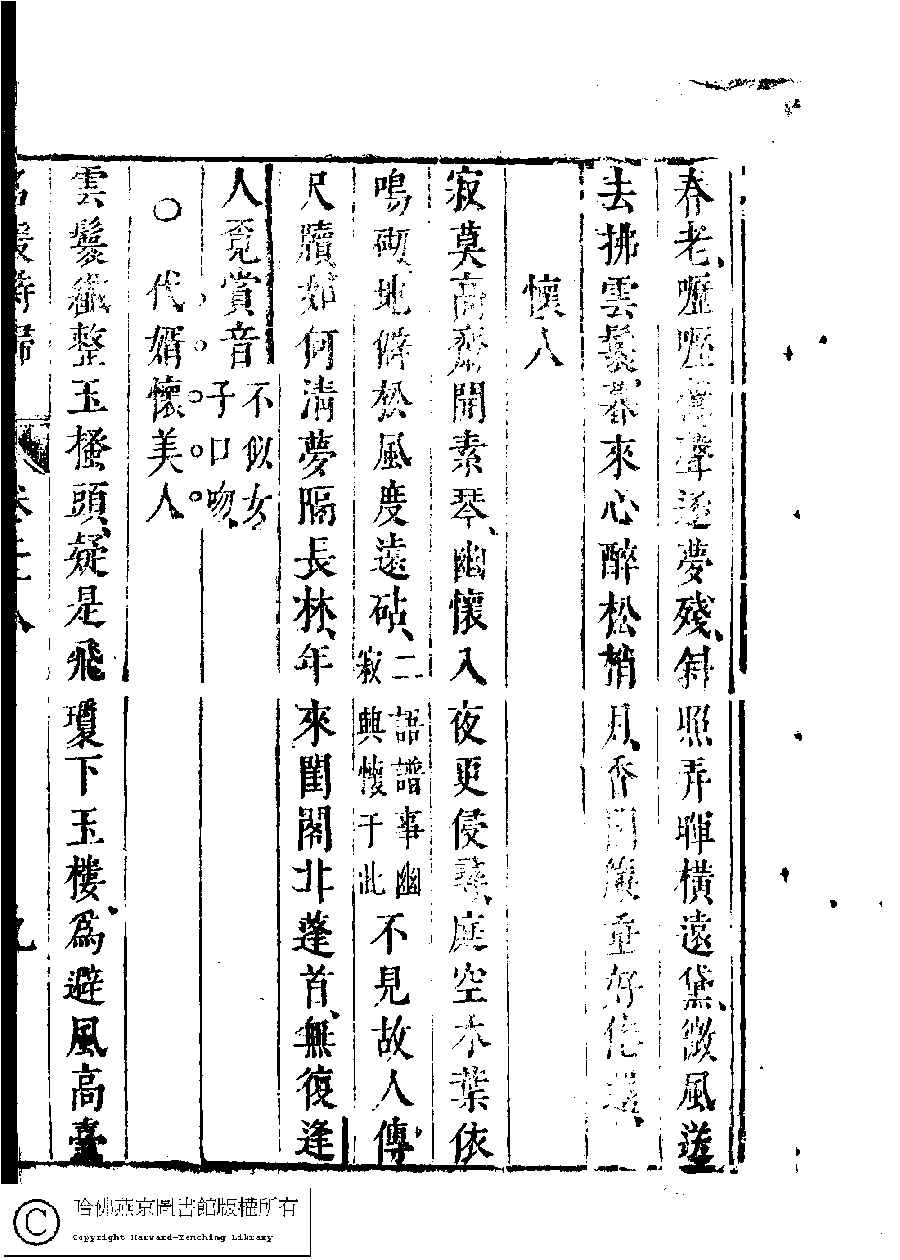 春老嚦嚦鶯聲逐夢殘斜照弄暉橫遠黛微風送
去拂雲鬟春來心醉松梢月香閣簾垂好倦
懷人
寂莫高齋開素琴幽懷入夜更侵尋庭空木葉依
鳴砌地僻松風度遠砧二語譜事幽寂興懷于此不見故人傳
尺牘如何清夢隔長林年來閨閣北蓬首無復逢
人覓賞音不似女子口吻
○代婿懷美人
雲鬟纔整玉搔頭疑是飛瓊下玉樓為避風高臺
名媛詩歸
卷二十八
九
哈佛燕京圖書館版權所有
Copyright Harvard-Yenching Library